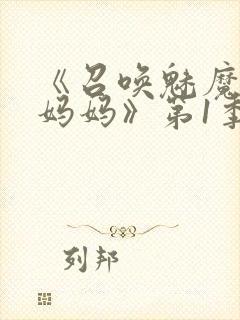 《召唤魅魔
妈妈》第1季
列邦